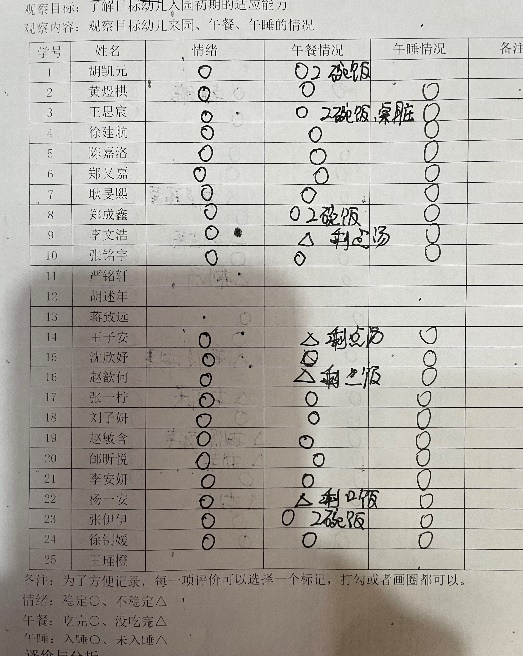 观察目标：了解目标幼儿入园初期的适应能力
观察内容：观察目标幼儿来园、午餐、午睡的情况
学号 姓名 情绪 午餐情况 午睡情况 备注
1 胡凯元 ○ ○2碗饭
2 黄煜棋 ○ ○ ○
3 王思宸 ○ ○ 2碗饭,桌脏 ○
4 徐建航 ○ ○ ○
5 嘉洛 ○ ○ ○
6 郑 嘉 ○ ○ ○
7 耿旻熙 ○ ○ ○
8 郑成鑫 ○ ○2碗饭 ○
9 李文浩 ○ △ 剩点汤 ○
10 张铭宇 ○ ○ ○
11 严铭轩
12 胡述年
13 蒋致远
14 王子安 ○ △剩点汤 ○
15 沈欣妤 ○ ○
16 赵歆 ○ △剩点饭 ○
17 张一柠 ○ ○ ○
18 刘子妍 ○ ○ ○
19 赵敏含 ○ ○ ○
20 邰昕悦 ○ ○ ○
21 李安妍 ○ ○ ○
22 杨一安 ○ △剩口饭 ○
23 张伊伊 ○ ○ 2碗饭 ○
24 徐 媛 ○ ○ ○
25 王瑾橙
备注：为了方便记录，每一项评价可以选择一个标记，打勾或者画圈都可以。
情绪：稳定○、不稳定△
午餐：吃完○、没吃完△
午睡：入睡○、未入睡△
评价与分析